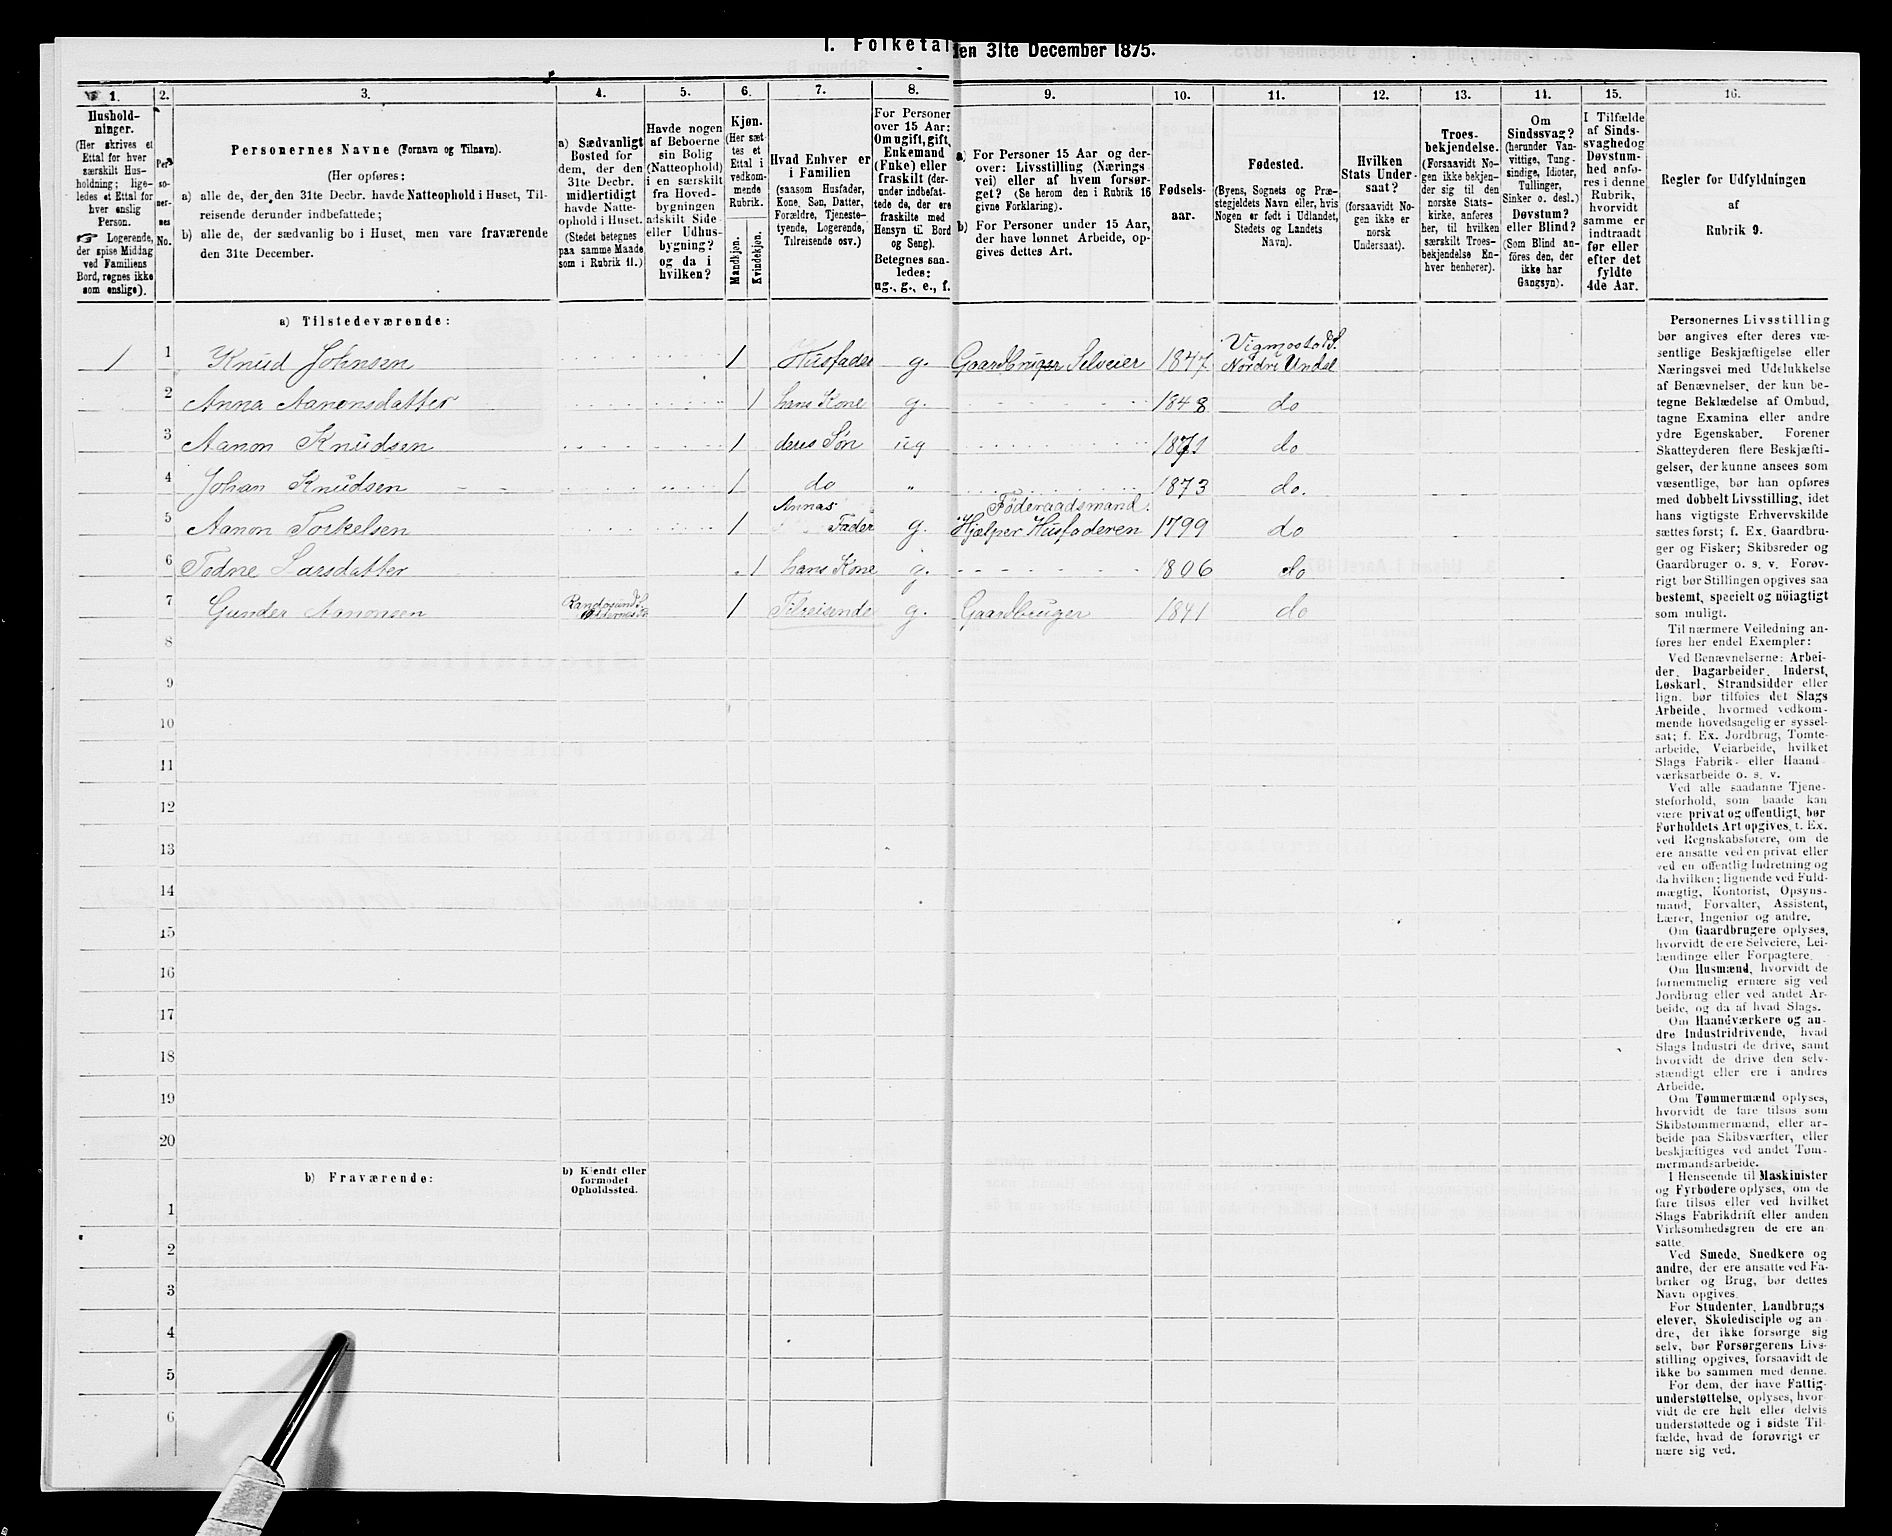 I. Folketal den 31te December 1875.
1. 2. 3. 4. 5. 6. 7. 8. 9. 10. 11. 12. 13. 14. 15. 16.
Hushold-
ninger.
(Her skrives et
Ettal for hver
særskilt Hus-
holdning; lige-
ledes et Ettal for
hver enslig
Person.
☞ Logerende,
der spise Middag
ved Familiens
Bord, regnes ikke
som enslige).
Per-
so-
ner-
nes
No.
Personernes Navne (Fornavn og Tilnavn).
(Her opføres:
a) alle de, der den 31te Decbr. havde Natteophold i Huset, Til-
reisende derunder indbefattede;
b) alle de, der sædvanlig bo i Huset, men vare fraværende
den 31te December.
a) Sædvanligt
Bosted for
dem, der den
31te Decbr.
midlertidigt
havde Natte-
ophold i Huset.
(Stedet betegnes
paa samme Maade
som i Rubrik 11.)
Havde nogen
af Beboerne
sin Bolig
(Natteophold)
i en særskilt
fra Hoved-
bygningen
adskilt Side-
eller Udhus-
bygning?
og da i
hvilken?
Kjøn.
(Her sæt-
tes et
Ettal i
vedkom-
mende
Rubrik.
Mandkjøn.
Kvindekjøn.
Hvad Enhver er
i Familien
(saasom Husfader,
Kone, Søn, Datter,
Forældre, Tjeneste-
tyende, Logerende,
Tilreisende osv.)
For Personer
over 15 Aar:
Om ugift, gift,
Enkemand
(Enke) eller
fraskilt (der-
under indbefat-
tede de, der ere
fraskilte med
Hensyn til Bord
og Seng).
Betegnes saa-
ledes:
ug., g., e., f.
a) For Personer 15 Aar og der-
over: Livsstilling (Nærings-
vei) eller af hvem forsør-
get? (Se herom den i Rubrik 16
givne Forklaring).
b) For Personer under 15 Aar,
der have lønnet Arbeide, op-
gives dettes Art.
Fødsels-
aar.
Fødested.
(Byens, Sognets og Præ-
stegjeldets Navn eller, hvis
Nogen er født i Udlandet,
Stedets og Landets
Navn).
Hvilken
Stats Under-
saat?
(forsaavidt No-
gen ikke er
norsk
Undersaat).
Troes-
bekjendelse.
(Forsaavidt No-
gen ikke bekjen-
der sig til den
norske Stats-
kirke, anføres
her, til hvilken
særskilt Troes-
bekjendelse En-
hver henhører).
Om
Sindssvag?
(herunder Van-
vittige, Tung-
sindige, Idioter,
Tullinger,
Sinker o. desl.)
Døvstum?
eller Blind?
(Som Blind an-
føres den, der
ikke har
Gangsyn).
I Tilfælde
af Sinds-
svaghed og
Døvstum-
hed anfø-
res i denne
Rubrik,
hvorvidt
samme er
indtraadt
før eller
efter det
fyldte
4de Aar.
Regler for Udfyldningen
af
Rubrik 9.
a) Tilstedeværende:
1 1 Knud Johnsen 1 Husfader g. Gaardbruger Selveier 1847 Vigmostad S. Nordre Undal
2 Anna Aanonsdatter 1 hans Kone g. 1848 do
3 Aanon Knudsen 1 deres Søn ug 1871 do
4 Johan Knudsen 1 do " 1873 do.
5 Aanon Torkelsen 1 Annas Fader g. Føderaadsmand. Hjælper Husfaderen 1799 do
6 Todne Larsdatter 1 hans Kone g. 1806 do
7 Gunder Aanonsen Randøsund S. 1 Tilreisende g. Gaardbruger 1841 do
8
9
10
11
12
13
14
15
16
17
18
19
20
b) Fraværende:
b) Kjendt eller
formodet
Opholdssted.
1
2
3
4
5
6
Personernes Livsstilling
bør angives efter deres væ-
sentlige Beskjæftigelse eller
Næringsvei med Udelukkelse
af Benævnelser, der kun be-
tegne Beklædelse af Ombud,
tagne Examina eller andre
ydre Egenskaber. Forener
Skatteyderen flere Beskjæfti-
gelser, der kunne ansees som
væsentlige, bør han opføres
med dobbelt Livsstilling, idet
hans vigtigste Erhvervskilde
sættes først; f. Ex. Gaardbru-
ger og Fisker; Skibsreder og
Gaardbruger o. s. v. Forøv-
rigt bør Stillingen opgives saa
bestemt, specielt og nöiagtigt
som muligt.
Til nærmere Veiledning an-
føres her endel Exempler:
Ved Benævnelserne: Arbei-
der, Dagarbeider, Inderst,
Løskarl, Strandsidder eller
lign. bør tilføies det Slags
Arbeide, hvormed vedkom-
mende hovedsagelig er syssel-
sat; f. Ex. Jordbrug, Tomte-
arbeide, Veiarbeide, hvilket
Slags Fabrik- eller Haand-
værksarbeide o. s. v.
Ved alle saadanne Tjene-
steforhold, som baade kan
være privat og offentligt, bør
Forholdets Art opgives, t. Ex.
ved Regnskabsførere, om de
ere ansatte ved en privat eller
ved en offentlig Indretning og
da hvilken; lignende ved Fuld-
mægtig, Kontorist, Opsyns-
mand, Forvalter, Assistent,
Lærer, Ingeniør og andre.
Om Gaardbrugere oplyses,
hvorvidt de ere Selveiere, Lei-
lændinge eller Forpagtere.
Om Husmænd, hvorvidt de
fornemmelig ernære sig ved
Jordbrug eller ved andet Ar-
beide, og da af hvad Slags.
Om Haandværkere og an-
dre Industridrivende, hvad
Slags Industri de drive, samt
hvorvidt de drive den selv-
stændigt eller ere i andres
Arbeide.
Om Tømmermænd oplyses,
hvorvidt de fare tilsøs som
Skibstømmermænd, eller ar-
beide paa Skibsværfter, eller
beskjæftiges ved andet Tøm-
mermandsarbeide.
I Henseende til Maskinister
og Fyrbødere oplyses, om de
fare tilsøs eller ved hvilket
Slags Fabrikdrift eller anden
Virksomhedsgren de ere an-
satte.
Ved Smede, Snedkere og
andre, der ere ansatte ved Fa-
briker og Brug, bør dettes
Navn opgives.
For Studenter, Landbrugs-
elever, Skoledisciple og an-
dre, der ikke forsørge sig
selv, bør Forsørgerens Livs-
stilling opgives, forsaavidt de
ikke bo sammen med denne.
For dem, der have Fattig-
understøttelse, oplyses, hvor-
vidt de ere helt eller delvis
understøttede og i sidste Til-
fælde, hvad de forøvrigt er-
nære sig ved.